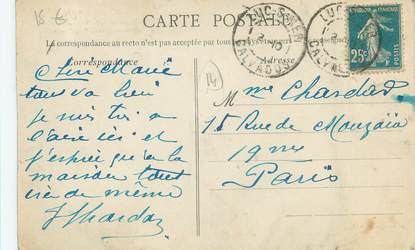 15 €
CARTE POSTALE
La correspondance au recto n'est pas acceptée par tous
Correspondance
Adresse
LUC-S-MER
CALVADOS
LUC
CALVADOS
25c
14
Chère Marie
tout va bien
je suis très
à l'aise ici et
j'espère qu'à la
maison tout
va de même
Chardar
Mme Chardar
15 Rue de Mouzaïa
19me
Paris